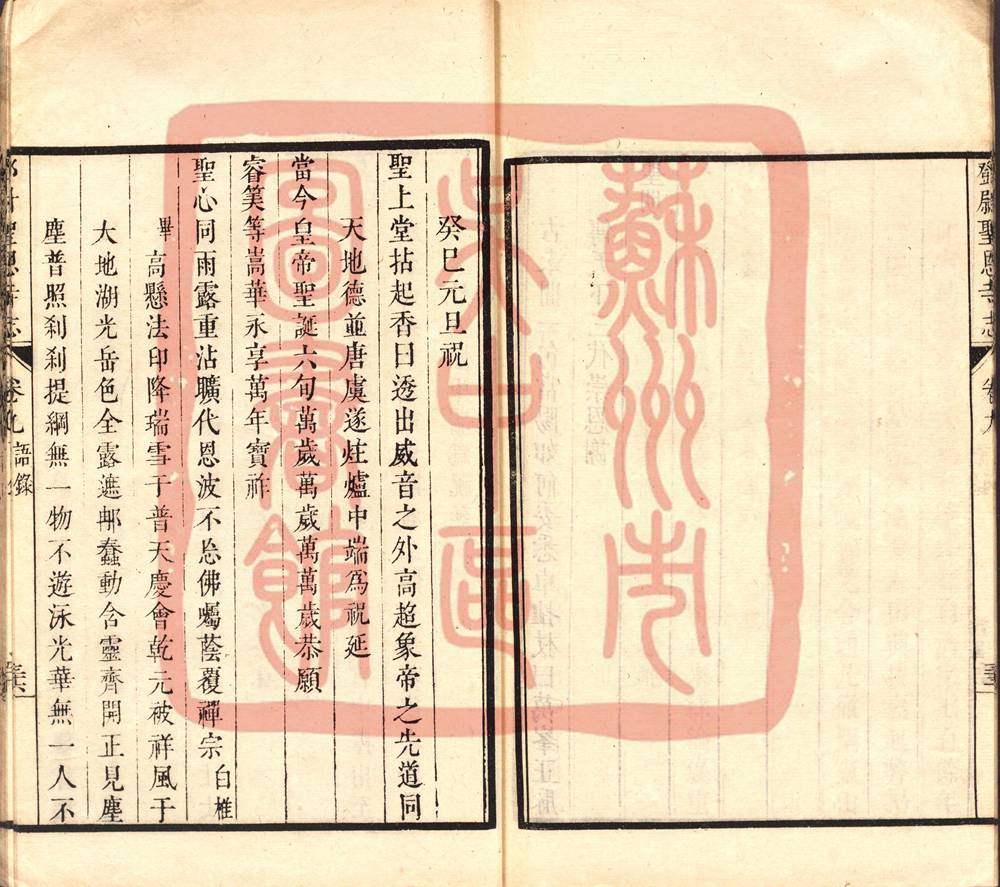 鄧尉聖恩寺志
卷九
癸巳元旦祝
聖上堂拈起香曰透出威音之外高超象帝之先道同
天地德並唐虞遂炷爐中端爲祝延
當今皇帝聖誕六旬萬歲萬歲萬萬歲恭願
睿筭等嵩華永享萬年寶祚
聖心同雨露重沾曠代恩波不忘佛囑蔭覆禪宗白椎
畢高懸法印降瑞雪于普天慶會乾元被祥風于
大地湖光岳色全露遮那蠢動含靈齊開正見塵
塵普照刹刹提綱無一物不遊泳光華無一人不
卷九
語錄
蘇州市
吳中區
圖書館